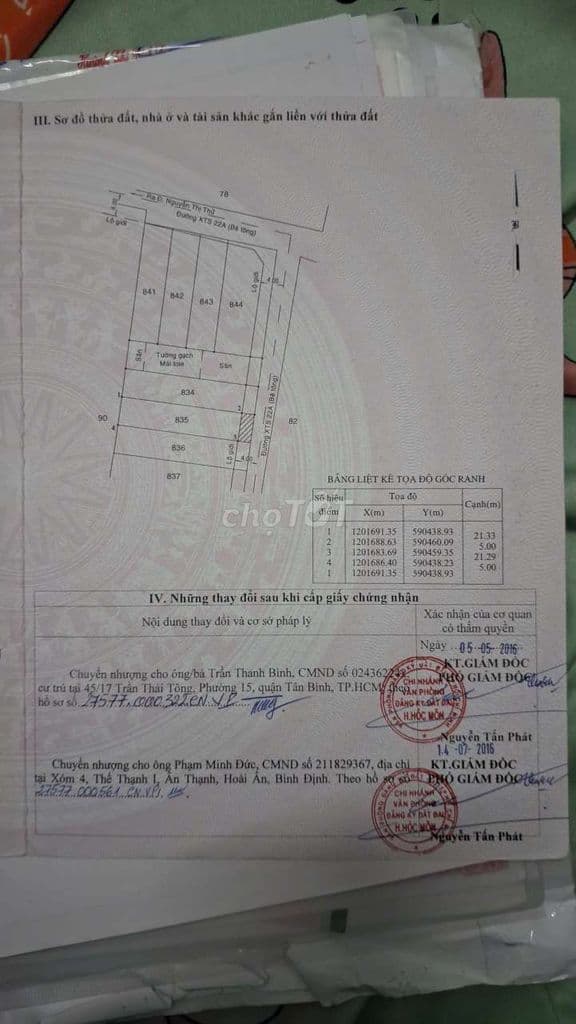 III. Sơ đồ thửa đất, nhà ở và tài sản khác gắn liền với thửa đất
78
Ra Đ. Nguyễn Thị Thử
Đường XTS 22A (Bê tông)
Lộ giới
4.00
B
841
842
843
844
Lộ giới
4.00
Sân
Tường gạch
Mái tole
Sân
834
1
2
90
835
82
4
3
836
Lộ giới
4.00
Đường XTS 22A (Bê tông)
837
BẢNG LIỆT KÊ TỌA ĐỘ GÓC RANH
Số hiệu điểm
Tọa độ
Cạnh(m)
X(m)
Y(m)
1 1201691.35 590438.93
21.33
2 1201688.63 590460.09
5.00
3 1201683.69 590459.35
21.29
4 1201686.40 590438.23
5.00
1 1201691.35 590438.93
chợTỐT
IV. Những thay đổi sau khi cấp giấy chứng nhận
Nội dung thay đổi và cơ sở pháp lý
Xác nhận của cơ quan
có thẩm quyền
Ngày 05-05-2016
Chuyển nhượng cho ông/bà Trần Thanh Bình, CMND số
cư trú tại 45/17 Trần Thái Tông, Phường 15, quận Tân Bình, TP.HCM theo
hồ sơ số
KT.GIÁM ĐỐC
PHÓ GIÁM ĐỐC
CHI NHÁNH
VĂN PHÒNG
ĐĂNG KÝ ĐẤT ĐAI
H.HÓC MÔN
Nguyễn Tấn Phát
14-07-2016
Chuyển nhượng cho ông Phạm Minh Đức, CMND số 211829367, địa chỉ
tại Xóm 4, Thế Thạnh 1, Ân Thạnh, Hoài Ân, Bình Định. Theo hồ sơ số
27577.000561.CN.VP1
KT.GIÁM ĐỐC
PHÓ GIÁM ĐỐC
CHI NHÁNH
VĂN PHÒNG
ĐĂNG KÝ ĐẤT ĐAI
H.HÓC MÔN
Nguyễn Tấn Phát